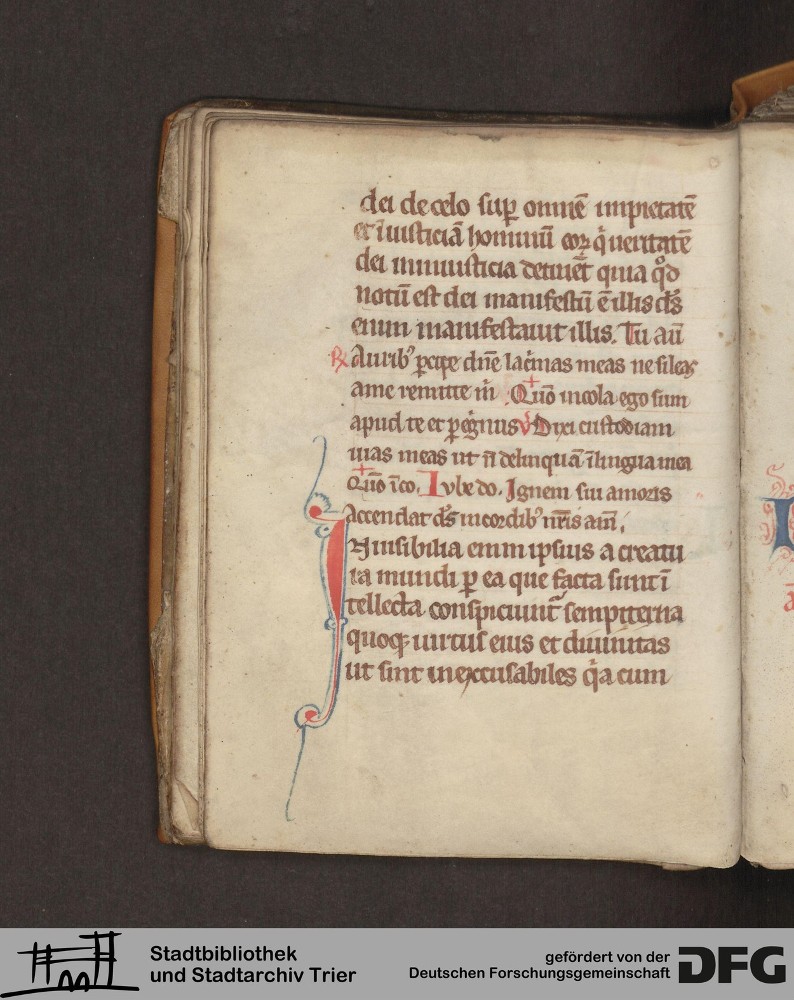 dei de celo sup̱ omnē impietatē
et īiusticiā hominū eoꝝ q̇ ueritatē
dei in iniusticia detinēt quia qͦd
notū est dei manifestū ē illis ds̄
enim manifestauit illis. Tu aū
℟ Aurib⁹ p̱cipe dn̄e lac̄mas meas ne sileas
a me remitte m̄ + Qm̄o incola ego sum
apud te et p̱eg̾nus ℣ Dixi custodiam
uias meas ut n̄ delinquā ī lingua mea
+ Qm̄o īco. Iube do. Ignem sui amoris
accendat ds̄ in cordib⁹ nr̄is am̄.
Inuisibilia enim ipsius a creatu
ra mundi p̱ ea que facta sunt ī
tellecta conspiciunt᷑ sempiterna
quoqꝫ uirtus eius et diuinitas
ut sint inexcusabiles q̇a cum
Stadtbibliothek
und Stadtarchiv Trier
gefördert von der
Deutschen Forschungsgemeinschaft
DFG